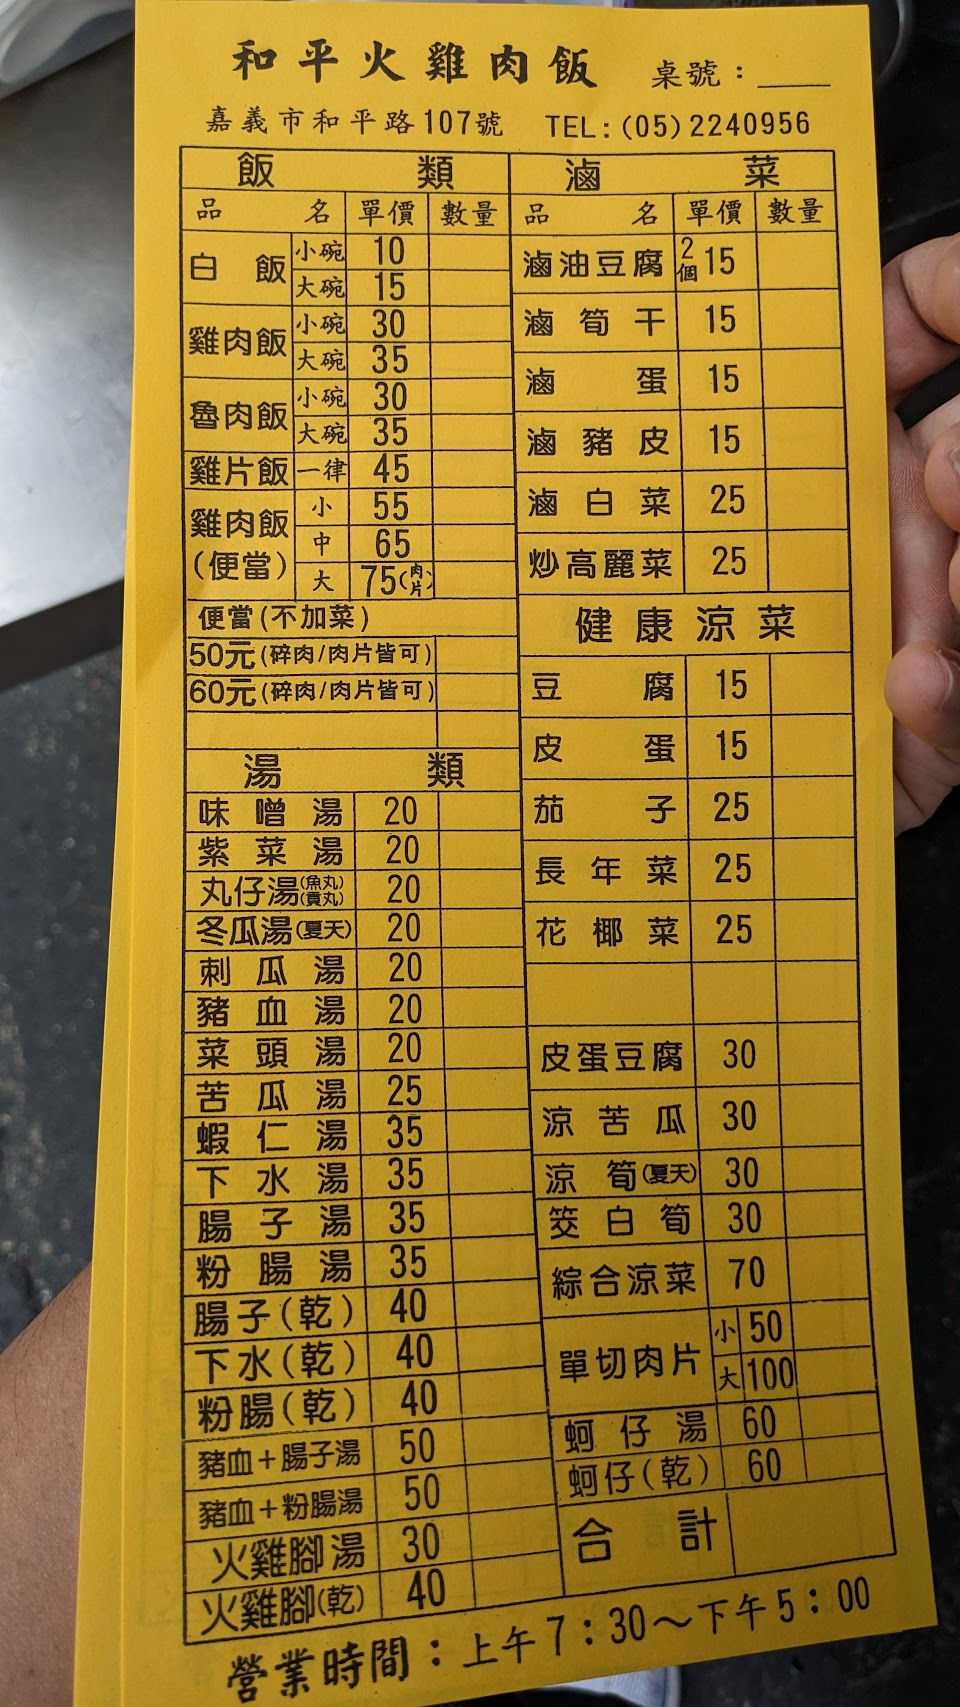 和平火雞肉飯 桌號：____
嘉義市和平路107號 TEL:(05)2240956
飯類
品名 單價 數量
白飯 小碗 10
大碗 15
雞肉飯 小碗 30
大碗 35
魯肉飯 小碗 30
大碗 35
雞片飯 一律 45
雞肉飯(便當) 小 55
中 65
大 75(肉片)
便當(不加菜)
50元(碎肉/肉片皆可)
60元(碎肉/肉片皆可)
湯類
味噌湯 20
紫菜湯 20
丸仔湯(魚丸)(貢丸) 20
冬瓜湯(夏天) 20
刺瓜湯 20
豬血湯 20
菜頭湯 20
苦瓜湯 25
蝦仁湯 35
下水湯 35
腸子湯 35
粉腸湯 35
腸子(乾) 40
下水(乾) 40
粉腸(乾) 40
豬血+腸子湯 50
豬血+粉腸湯 50
火雞腳湯 30
火雞腳(乾) 40
滷菜
品名 單價 數量
滷油豆腐 2個 15
滷筍干 15
滷蛋 15
滷豬皮 15
滷白菜 25
炒高麗菜 25
健康涼菜
豆腐 15
皮蛋 15
茄子 25
長年菜 25
花椰菜 25
皮蛋豆腐 30
涼苦瓜 30
涼筍(夏天) 30
筊白筍 30
綜合涼菜 70
單切肉片 小 50
大 100
蚵仔湯 60
蚵仔(乾) 60
合計
營業時間：上午7：30～下午5：00